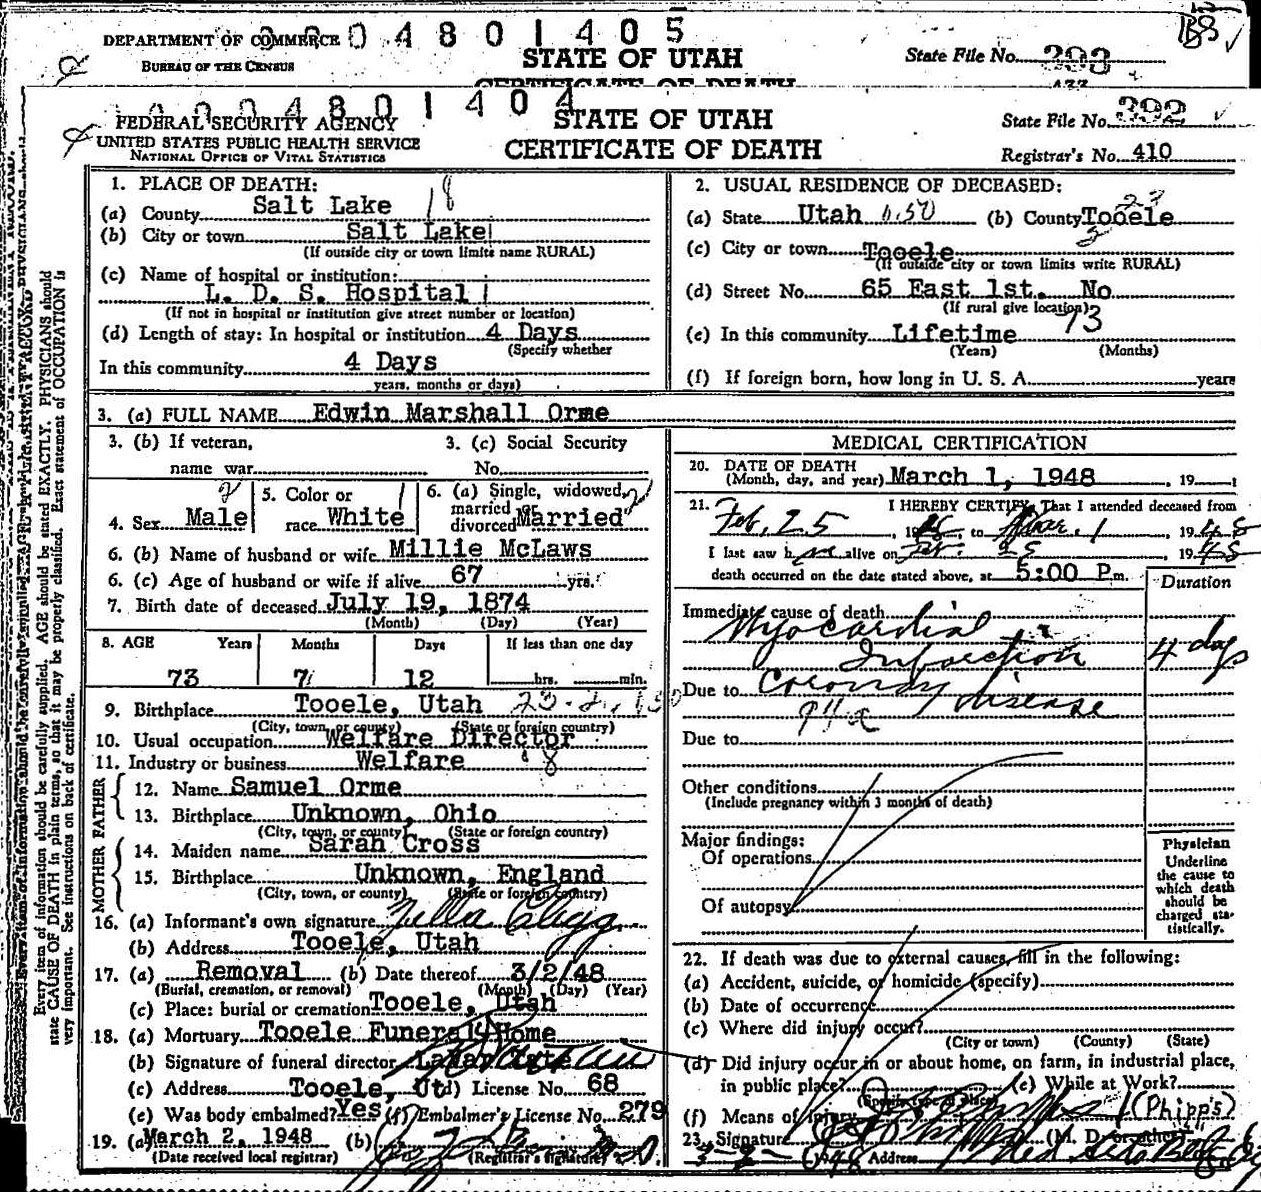 DEPARTMENT OF COMMERCE
004801405
BUREAU OF THE CENSUS
STATE OF UTAH
CERTIFICATE OF DEATH
State File No. 293
004801404
FEDERAL SECURITY AGENCY
UNITED STATES PUBLIC HEALTH SERVICE
NATIONAL OFFICE OF VITAL STATISTICS
STATE OF UTAH
CERTIFICATE OF DEATH
State File No. 292
Registrar's No. 410
Every item of information should be carefully supplied. AGE should be stated EXACTLY. PHYSICIANS should
state CAUSE OF DEATH in plain terms, so that it may be properly classified. Exact statement of OCCUPATION is
very important. See instructions on back of certificate.
1. PLACE OF DEATH:
(a) County Salt Lake 18
(b) City or town Salt Lake
(If outside city or town limits name RURAL)
(c) Name of hospital or institution:
L. D. S. Hospital
(If not in hospital or institution give street number or location)
(d) Length of stay: In hospital or institution 4 Days
(Specify whether
In this community 4 Days
years, months or days)
2. USUAL RESIDENCE OF DECEASED:
(a) State Utah (b) County Tooele 23
(c) City or town Tooele
(If outside city or town limits write RURAL)
(d) Street No. 65 East 1st. No
(If rural give location)
73
(e) In this community Lifetime
(Years) (Months)
(f) If foreign born, how long in U. S. A. years
3. (a) FULL NAME Edwin Marshall Orme
3. (b) If veteran,
name war
3. (c) Social Security
No.
4. Sex Male
5. Color or
race White
6. (a) Single, widowed,
married or
divorced Married
6. (b) Name of husband or wife Millie McLaws
6. (c) Age of husband or wife if alive 67 yrs.
7. Birth date of deceased July 19, 1874
(Month) (Day) (Year)
8. AGE Years Months Days If less than one day
73 7 12 hrs. min.
9. Birthplace Tooele, Utah
(City, town, or county) (State or foreign country)
10. Usual occupation Welfare Director
11. Industry or business Welfare
FATHER
12. Name Samuel Orme
13. Birthplace Unknown, Ohio
(City, town, or county) (State or foreign country)
MOTHER
14. Maiden name Sarah Cross
15. Birthplace Unknown, England
(City, town, or county) (State or foreign country)
16. (a) Informant's own signature Zella Clegg
(b) Address Tooele, Utah
17. (a) Removal (b) Date thereof 3/2/48
(Burial, cremation, or removal) (Month) (Day) (Year)
(c) Place: burial or cremation Tooele, Utah
18. (a) Mortuary Tooele Funeral Home
(b) Signature of funeral director LaMar Tate
(c) Address Tooele, Ut (d) License No. 68
(e) Was body embalmed? Yes (f) Embalmer's License No. 279
19. (a) March 2, 1948 (b)
(Date received local registrar) (Registrar's signature)
MEDICAL CERTIFICATION
20. DATE OF DEATH
(Month, day, and year) March 1, 1948 , 19
21. I HEREBY CERTIFY, That I attended deceased from
Feb, 25 , 1948, to Mar. 1 , 1948
I last saw h alive on Feb. 28 1948
death occurred on the date stated above, at 5:00 P m.
Duration
Immediate cause of death
Myocardial
Infarction 4 days
Due to Coronary disease
94a
Due to
Other conditions
(Include pregnancy within 3 months of death)
Major findings:
Of operations
Of autopsy
Physician
Underline
the cause to
which death
should be
charged sta-
tistically.
22. If death was due to external causes, fill in the following:
(a) Accident, suicide, or homicide (specify)
(b) Date of occurrence
(c) Where did injury occur?
(City or town) (County) (State)
(d) Did injury occur in or about home, on farm, in industrial place,
in public place? (e) While at Work?
(Specify type of place)
(f) Means of injury (Phipps)
23. Signature (M. D. or other)
3-2-1948 Address Med Arts Bldg